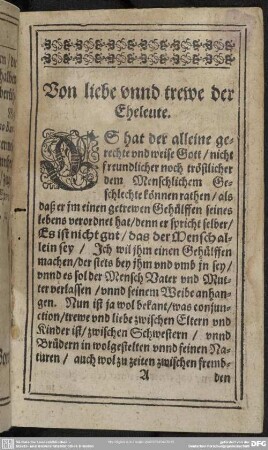 Von liebe vnnd trewe der
Eheleute.
ES hat der alleine ge-
rechte vnd weise Gott / nicht
freundlicher noch tröstlicher
dem Menschlichem Ge-
schlechte können rathen / als
daß er jm einen getrewen Gehülffen seines
lebens verordnet hat / denn er spricht selber /
Es ist nicht gut / das der Mensch al-
lein sey / Ich wil jhm einen Gehülffen
machen / der stets bey jhm vnd vmb jn sey /
vnnd es sol der Mensch Vater vnd Mut-
ter verlassen / vnnd seinem Weibe anhan-
gen. Nun ist ja wol bekant / was consun-
ction / trewe vnd liebe zwischen Eltern vnd
Kinder ist / zwischen Schwestern / vnnd
Brüdern in wolgestelten vnnd feinen Na-
turen / auch wol zu zeiten zwischen fremb-
A den